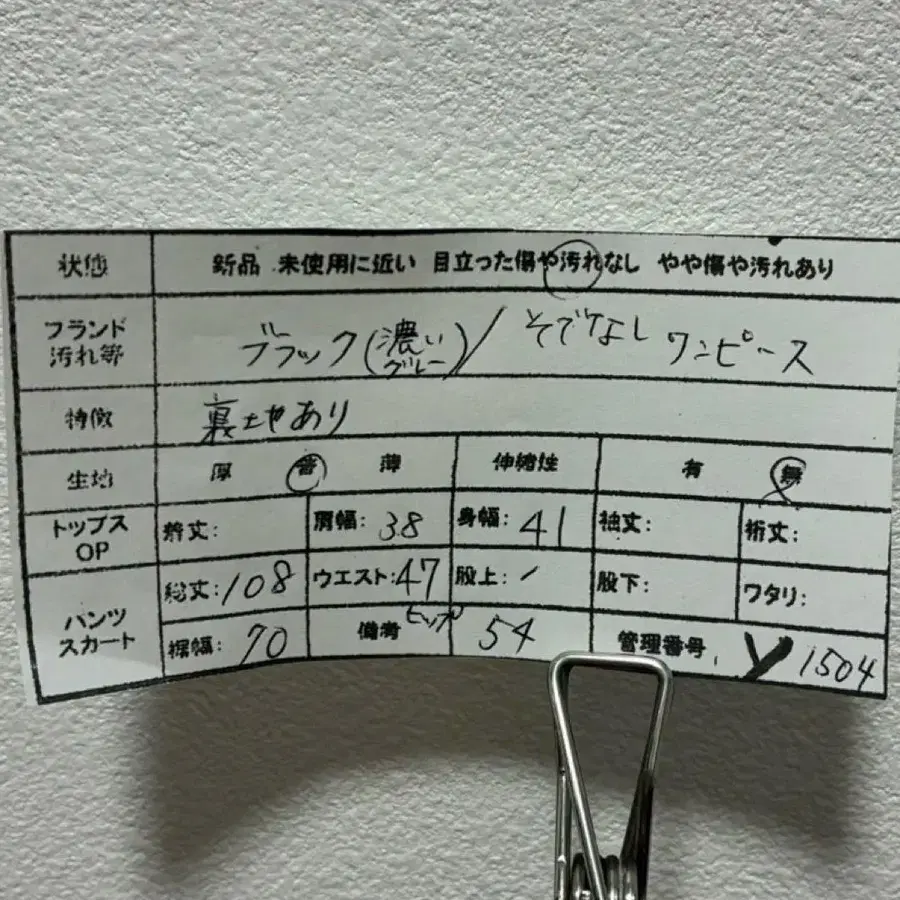 状態 新品 未使用に近い 目立った傷や汚れなし やや傷や汚れあり
ブランド 汚れ等 ブラック(濃いグレー)/そでなし ワンピース
特徴 裏地あり
生地 厚 普 薄 伸縮性 有 無
トップス OP 着丈: 肩幅: 38 身幅: 41 袖丈: 裄丈:
パンツ スカート 総丈: 108 ウエスト: 47 股上: 股下: ワタリ:
裾幅: 70 備考 ヒップ 54 管理番号 Y 1504